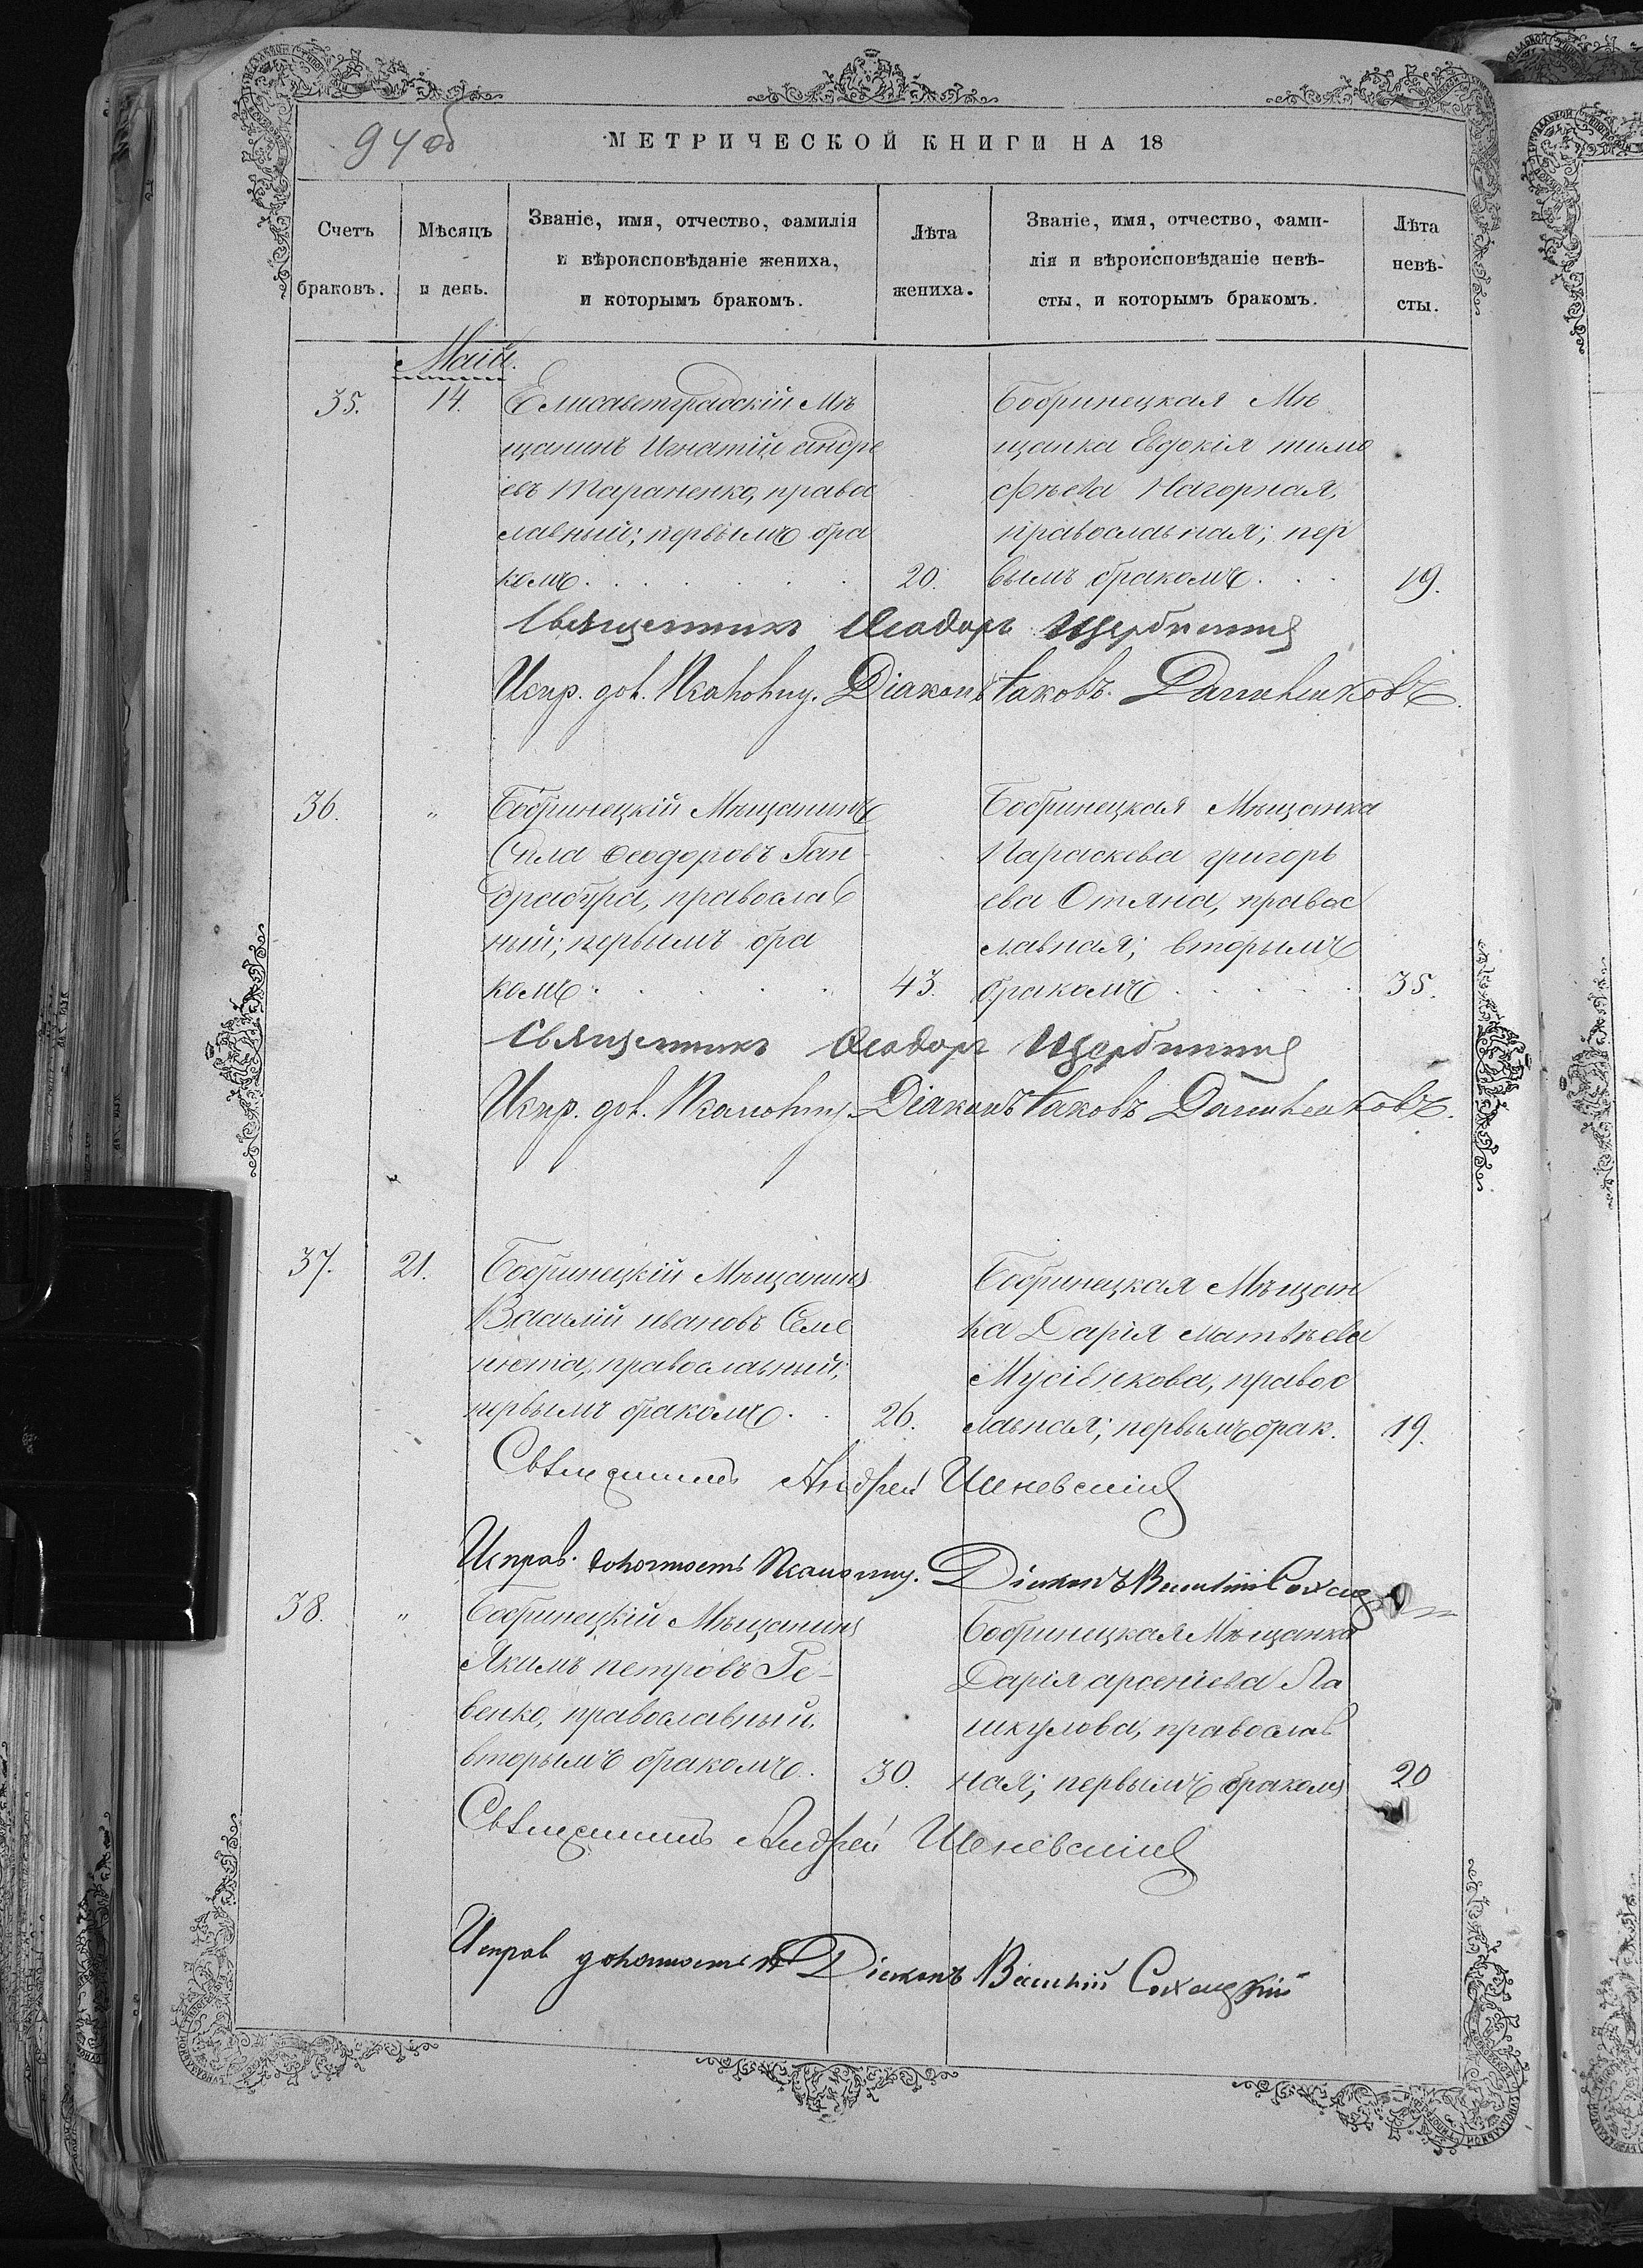 94 об
МЕТРИЧЕСКОЙ КНИГИ НА 18
Счетъ браковъ.
Мѣсяцъ и день.
Званіе, имя, отчество, фамилія
и вѣроисповѣданіе жениха,
и которымъ бракомъ.
Лѣта жениха.
Званіе, имя, отчество, фами-
лія и вѣроисповѣданіе невѣ-
сты, и которымъ бракомъ.
Лѣта невѣ-
сты.
Май.
35.
14.
Елисаветградскій Мѣ
щанинъ Игнатій андре
евъ Тараненко, правос
лавный; первымъ бра
комъ
20.
Бобринецкая Мѣ
щанка Евдокія тимо
фѣева Нагорная,
православная; пер
вымъ бракомъ
19.
Священникъ Ѳеодоръ
Испр. дол. Псаломщ. Діаконъ Іаковъ Данилевковъ.
36.
"
Бобринецкій Мѣщанинъ
Сила Ѳеодоровъ Ган-
драбура, православ
ный; первымъ бра
комъ
43.
Бобринецкая Мѣщанка
Параскева григорь
ева Отяна, правос
лавная; вторымъ
бракомъ
35.
Священникъ Ѳеодоръ
Испр. дол. Псаломщ. Діаконъ Іаковъ Данилевковъ.
37.
21.
Бобринецкій Мѣщанинъ
Василій ивановъ Семе
нюта, православный;
первымъ бракомъ
26.
Бобринецкая Мѣщан
ка Дарія матвѣева
Мусіенкова, правос
лавная; первымъ брак.
19.
Священникъ Андрей
Исправ. должность Псаломщ. Діаконъ Василій Сохацкій
38.
"
Бобринецкій Мѣщанинъ
Якимъ петровъ Ре-
венко, православный,
вторымъ бракомъ.
30.
Бобринецкая Мѣщанка
Дарія арсеніева Ла
шкулова, православ
ная; первымъ бракомъ
20
Священникъ Андрей
Исправ должность Діаконъ Василій Сохацкій